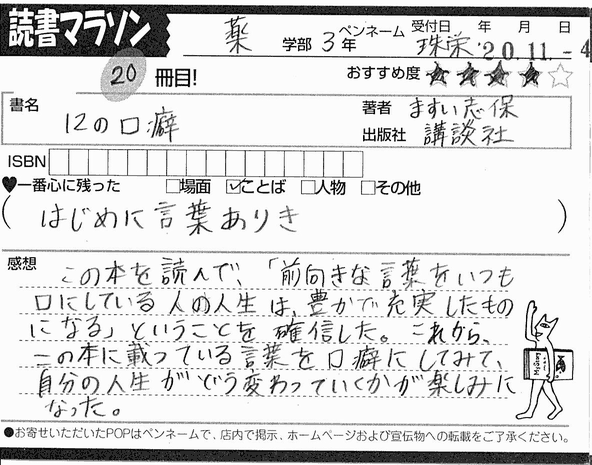 読書マラソン
薬 学部 3年 ペンネーム 珠栄 受付日 年 月 日
'20.11.-4
20 冊目! おすすめ度 ★★★★☆
書名 12の口癖
著者 ますい志保
出版社 講談社
ISBN
♥一番心に残った □場面 ☑ことば □人物 □その他
(はじめに言葉ありき)
感想
この本を読んで、「前向きな言葉をいつも
口にしている人の人生は、豊かで充実したもの
になる」ということを確信した。これから、
この本に載っている言葉を口癖にしてみて、
自分の人生がどう変わっていくかが楽しみに
なった。
●お寄せいただいたPOPはペンネームで、店内で掲示、ホームページおよび宣伝物への転載をご了承ください。